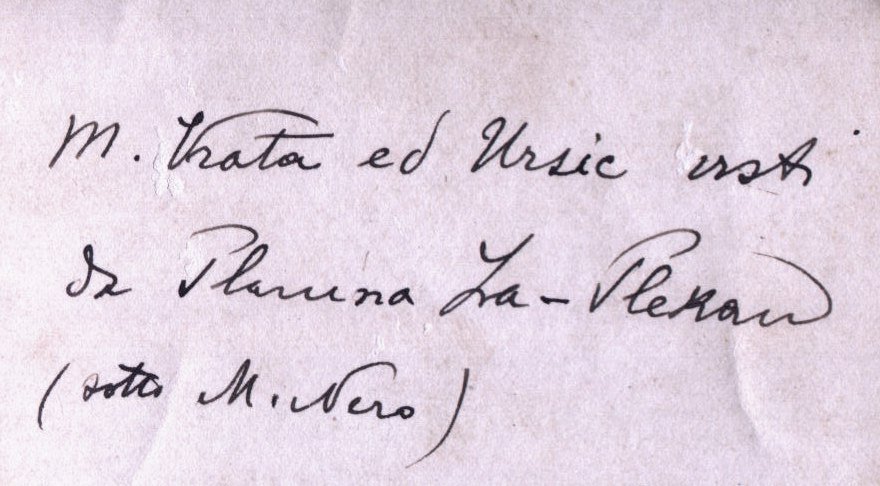 M. Vrata ed Ursic visti
da Planina Za-Plekam
(sotto M. Nero)